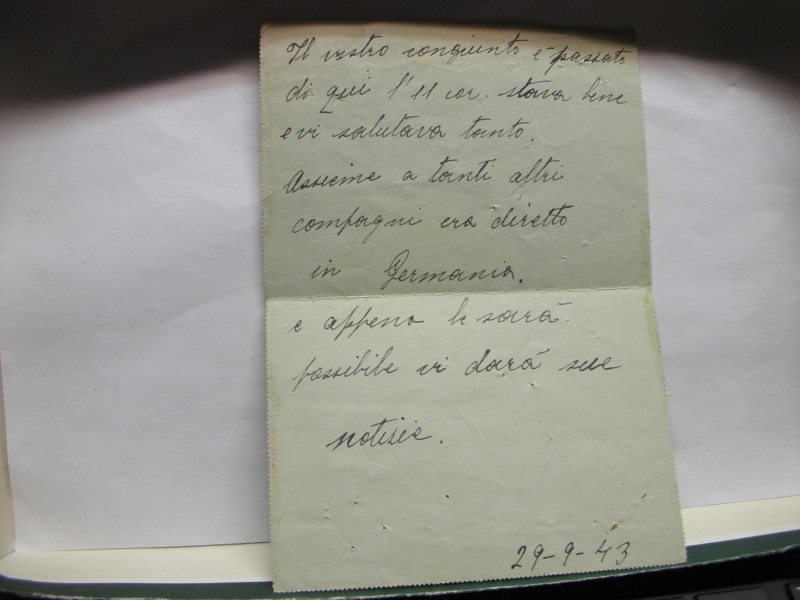 Il vostro congiunto è passato
di qui l'11 cor. stava bene
e vi salutava tanto.
Assieme a tanti altri
compagni era diretto
in Germania.
e appena le sarà
possibile vi darà sue
notisie.
29-9-43